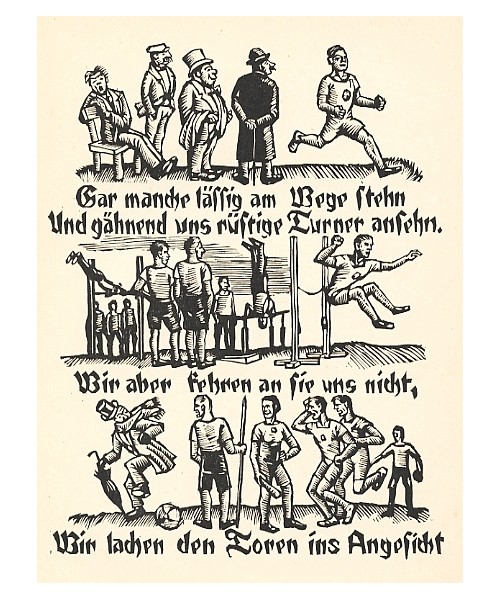 Gar manche lässig am Wege stehn
Und gähnend uns rüstige Turner ansehn.
Wir aber kehren an sie uns nicht,
Wir lachen den Toren ins Angesicht